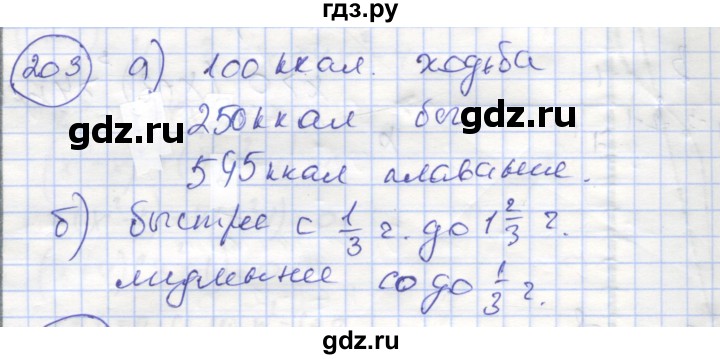 гдз.ру
203 а) 100 ккал. ходьба
gdz.ru gdz.ru
250 ккал бег
545 ккал плавание.
б) быстрее с 1/3 г. до 1 2/3 г.
gdz.ru gdz.ru
медленнее с 0 до 1/3 г.
gdz.ru